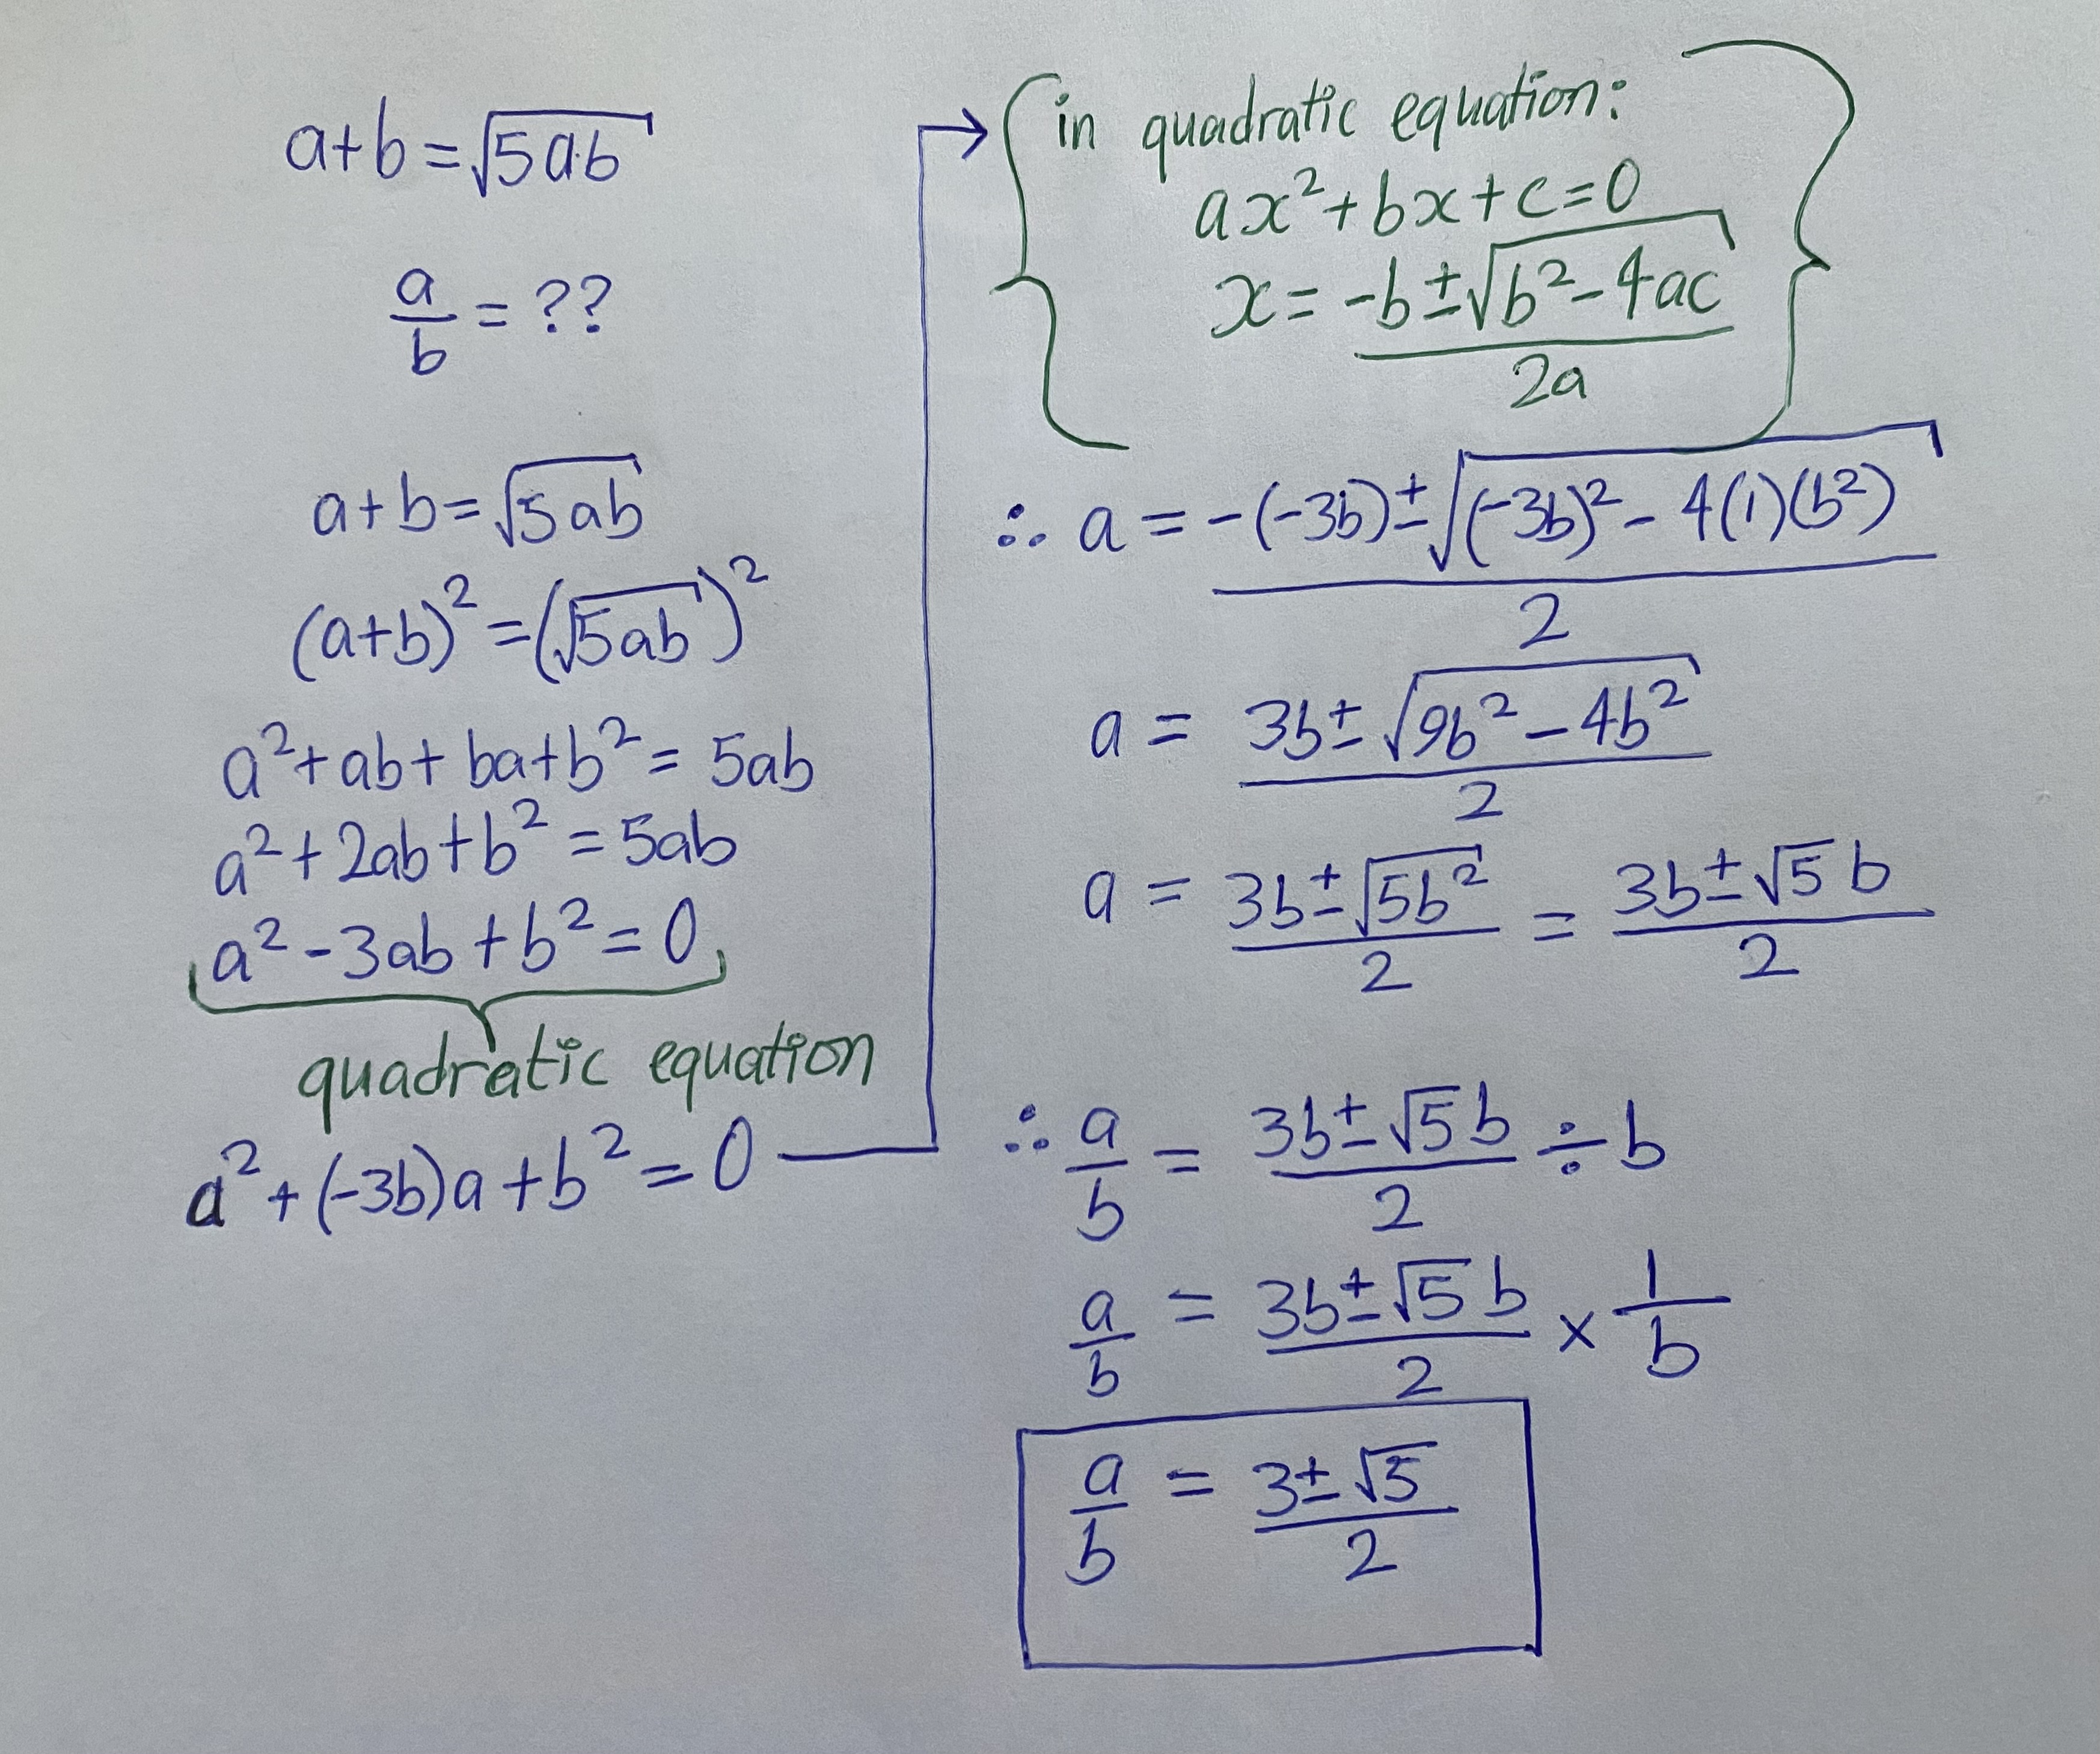 a+b=√5ab
a/b = ??
a+b=√5ab
(a+b)²=(√5ab)²
a²+ab+ba+b²= 5ab
a²+2ab+b²=5ab
a²-3ab+b²=0
quadratic equation
a²+(-3b)a+b²=0
in quadratic equation:
ax²+bx+c=0
x= -b±√b²-4ac / 2a
∴ a = -(-3b)±√(-3b)²-4(1)(b²) / 2
a = 3b±√9b²-4b² / 2
a = 3b±√5b² / 2 = 3b±√5 b / 2
∴ a/b = 3b±√5 b / 2 ÷ b
a/b = 3b±√5 b / 2 × 1/b
a/b = 3±√5 / 2